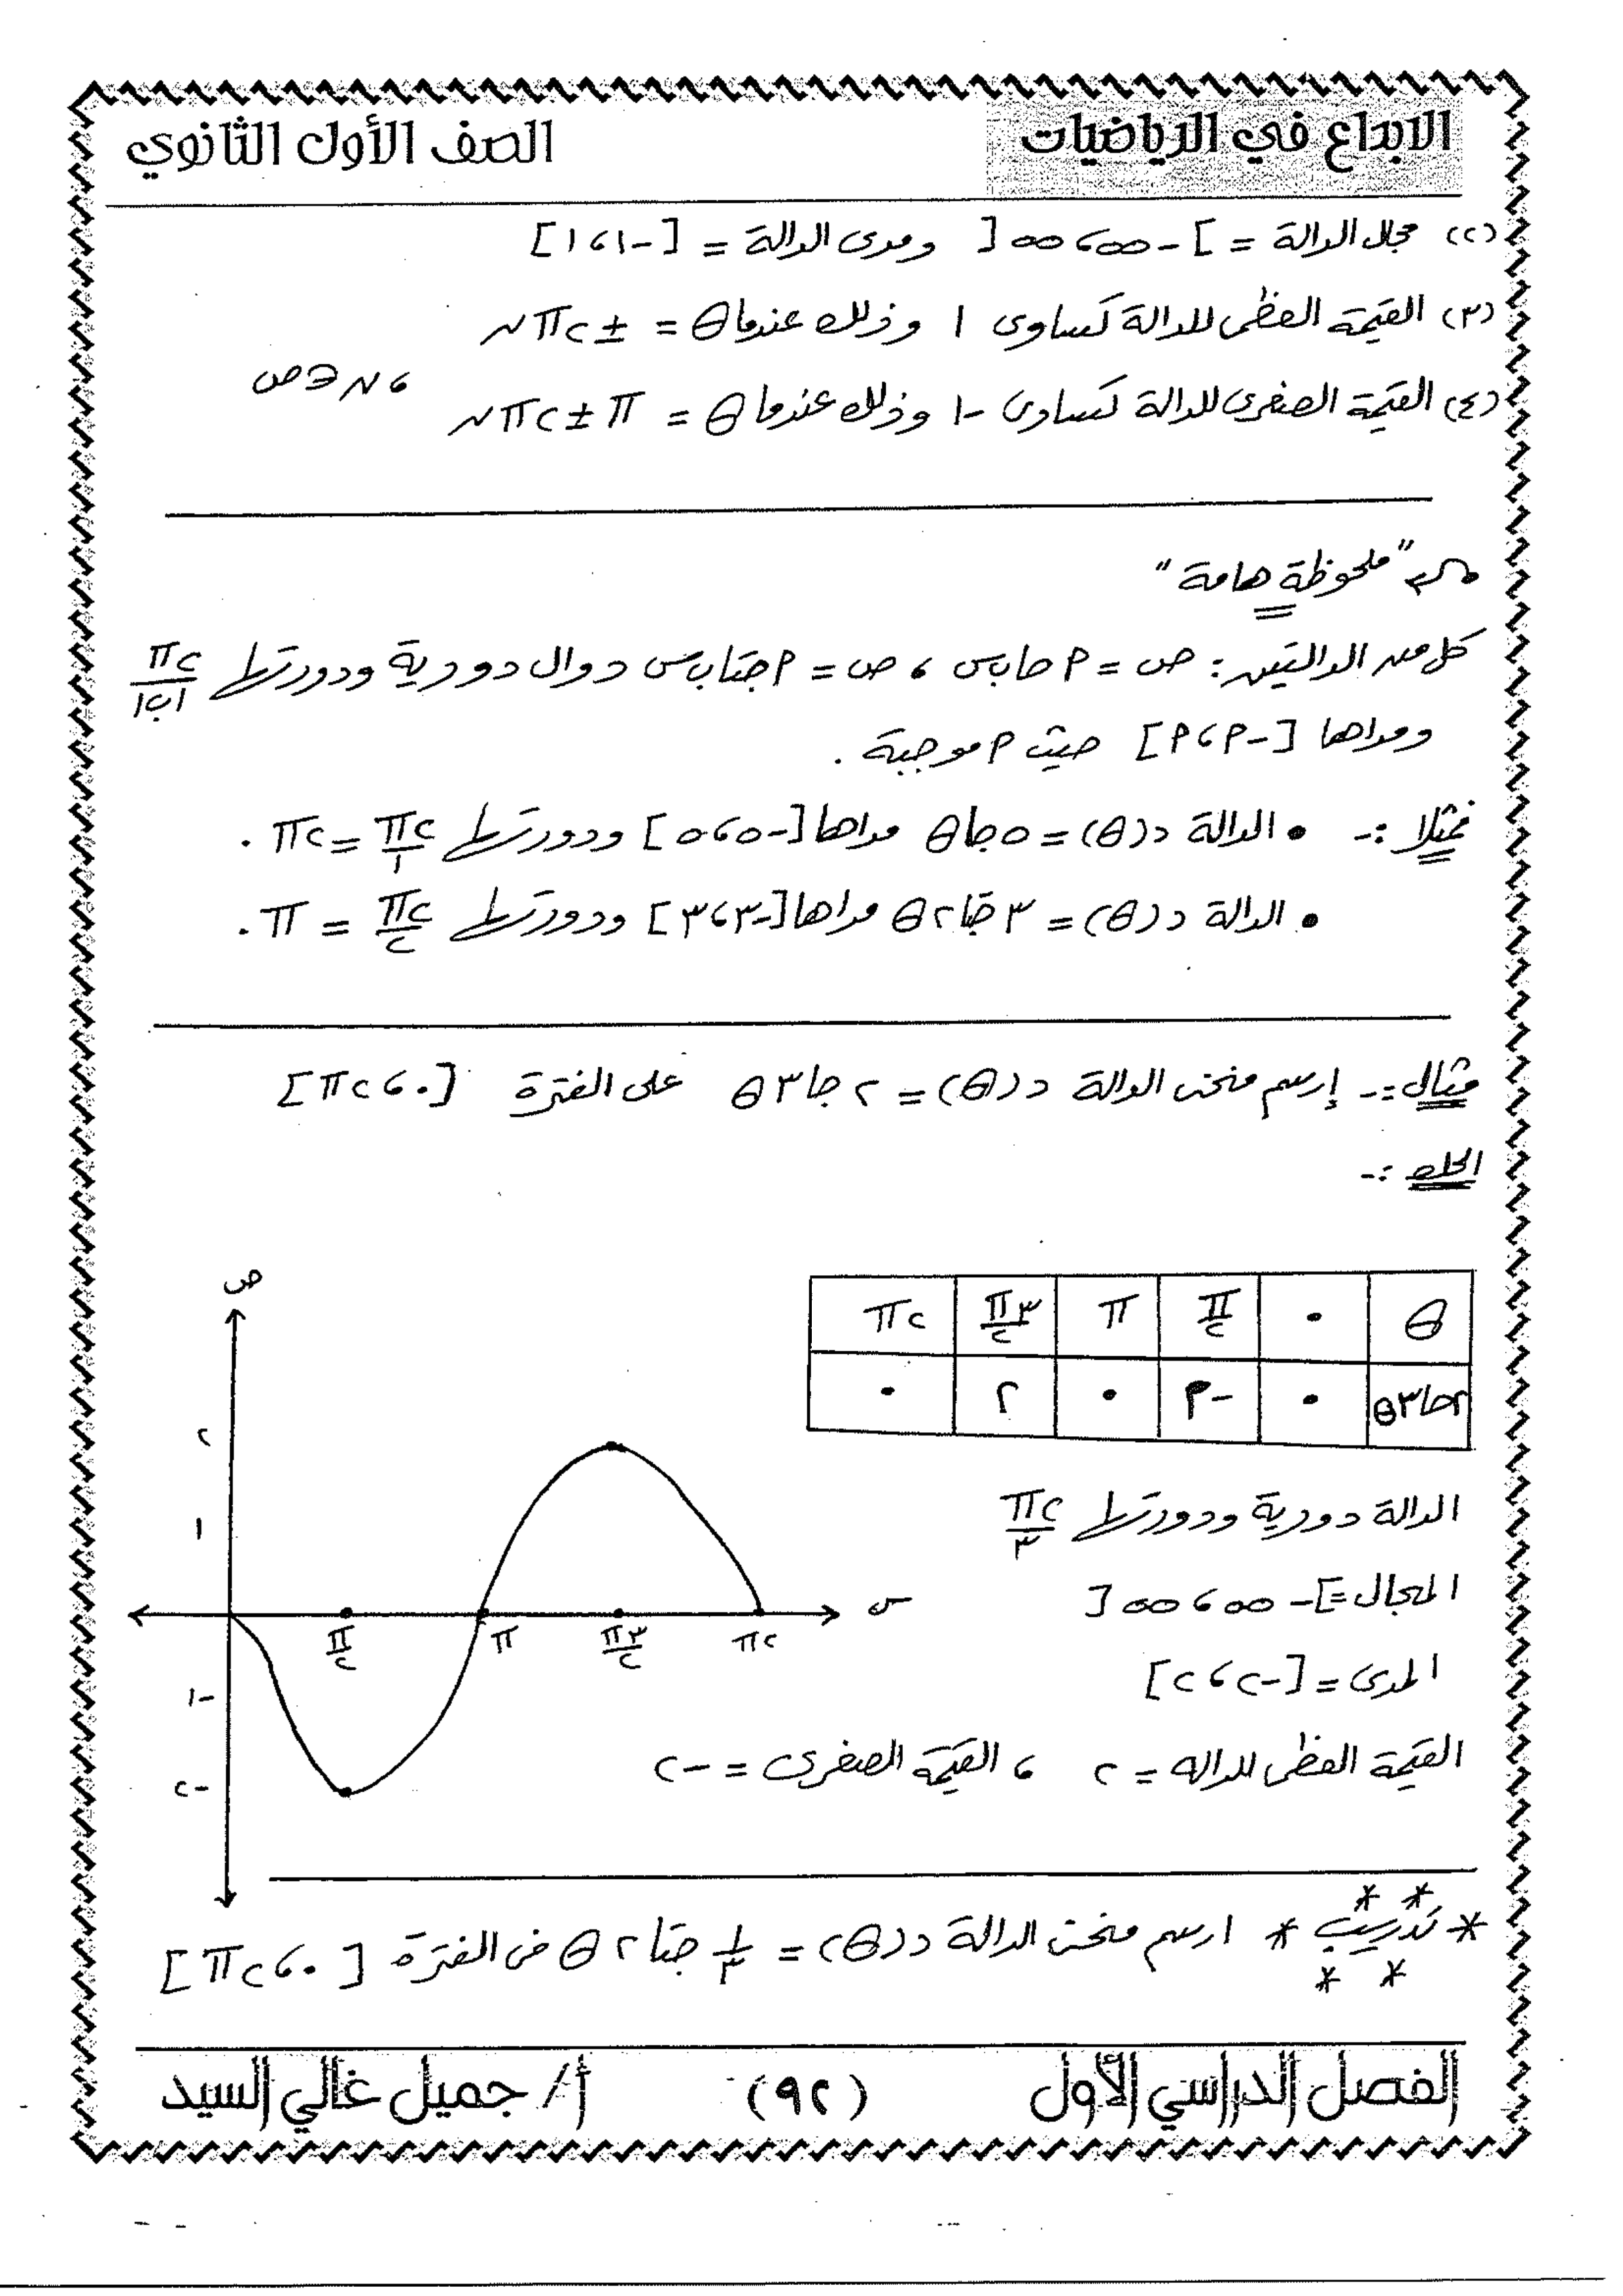 الابداع في الرياضيات
الصف الأول الثانوي
(٢) مجال الدالة = ]-∞ ، ∞[ ومدى الدالة = [-١ ، ١]
(٣) القيمة العظمى للدالة تساوى ١ وذلك عندما θ = ± ٢π ن
، ن ∈ ص
(٤) القيمة الصغرى للدالة تساوى -١ وذلك عندما θ = π ± ٢π ن
"ملحوظة هامة"
كل من الدالتين : ص = P حا ب س ، ص = P جتا ب س دوال دورية ودورتها ٢π/|ب|
ومداها [-P ، P] حيث P موجبة .
فمثلا :- • الدالة د(θ) = ٥ جا θ مداها [-٥ ، ٥] ودورتها ٢π/١ = ٢π .
• الدالة د(θ) = ٣ جتا ٢θ مداها [-٣ ، ٣] ودورتها ٢π/٢ = π .
مثال :- إرسم منحنى الدالة د(θ) = ٢ جا ٣θ على الفترة [٠ ، ٢π]
الحل :-
θ ٠ π/٢ π ٣π/٢ ٢π
٢حا٣θ ٠ -٢ ٠ ٢ ٠
ص
٢
١
-١
-٢
π/٢ π ٣π/٢ ٢π
س
الدالة دورية ودورتها ٢π/٣
المجال = ]-∞ ، ∞[
المدى = [-٢ ، ٢]
القيمة العظمى للداله = ٢ ، القيمة الصغرى = -٢
* تدريب * ارسم منحنى الدالة د(θ) = ١/٣ جتا ٢θ فى الفترة [٠ ، ٢π]
الفصل الدراسي الأول
(٩٢)
أ/ جميل غالي السيد